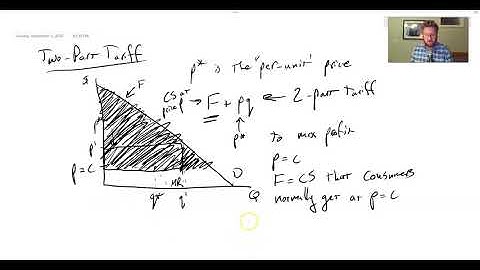 Two-Part Tariff
p* is the "per-unit" price
$
F
CS at price p
F + pq ← 2-part tariff
p*
p*
to max profit
p'
p = C
p = C
F = CS that consumers
normally get at p = C
MR
D
Q
q*
q'